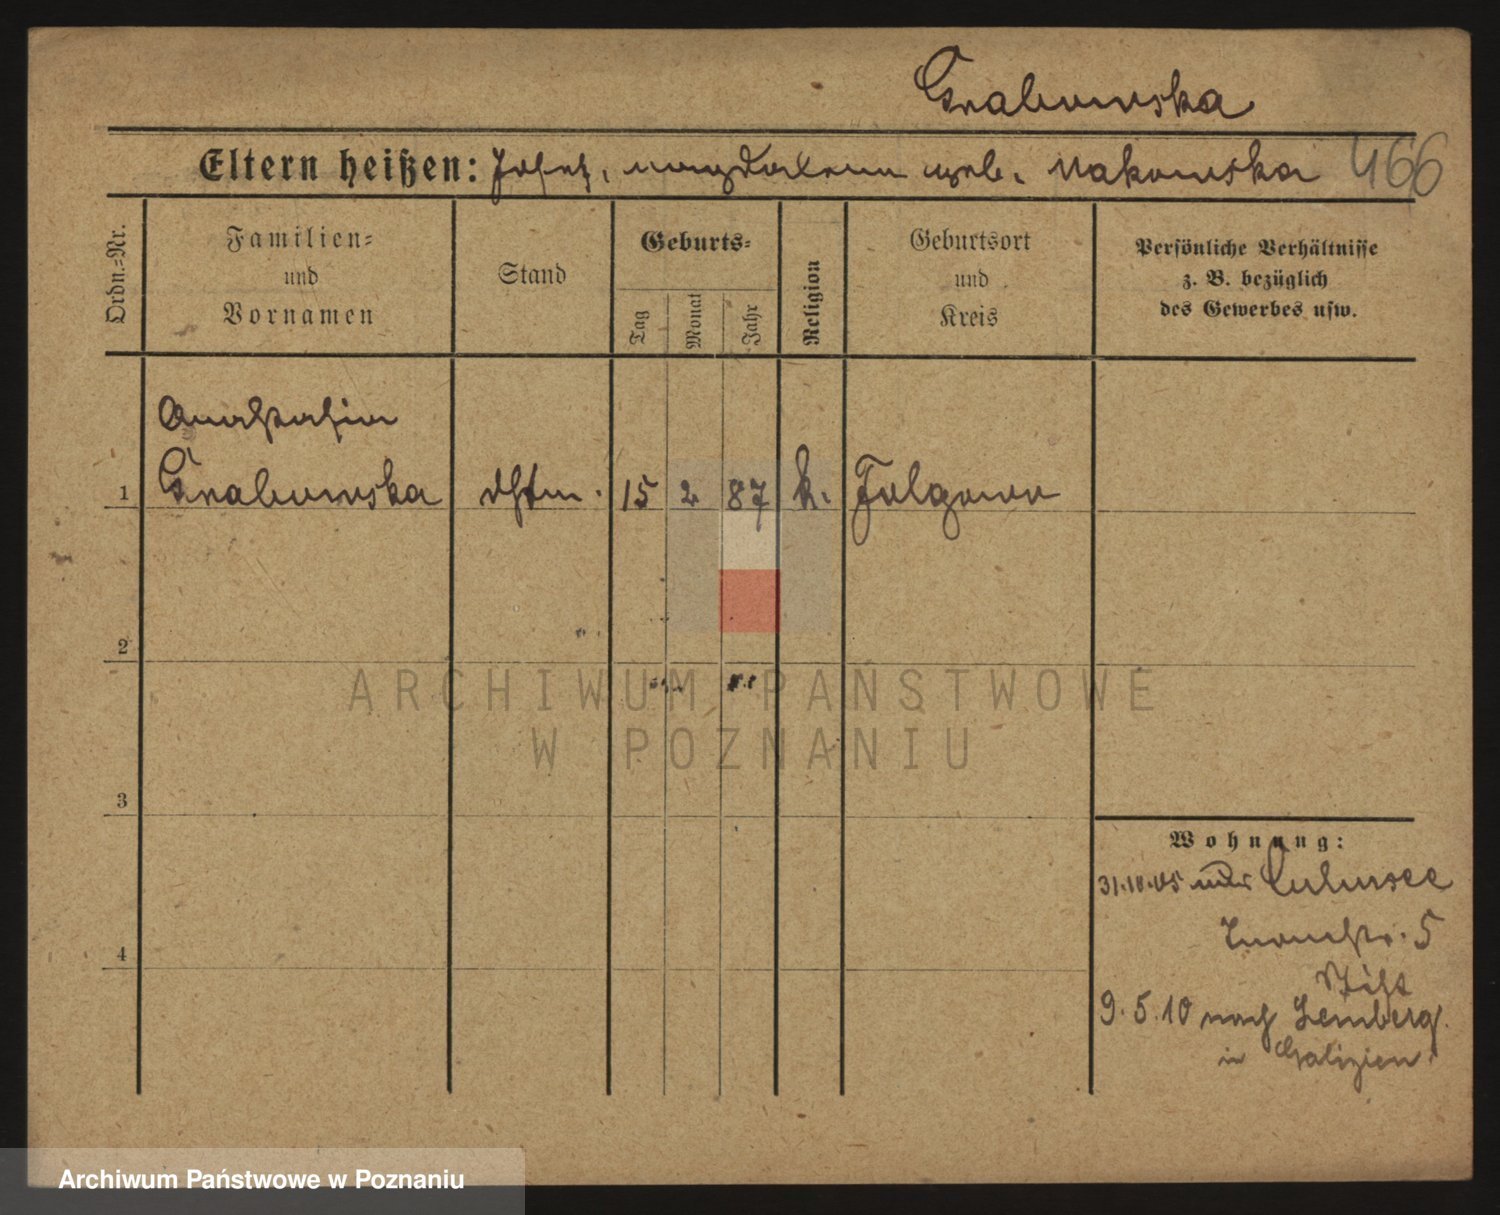 Grabowska
Eltern heißen: Josef, Magdalena geb. Makowska 466
Ordn.-Nr.
Familien-
und
Vornamen
Stand
Geburts-
Tag
Monat
Jahr
Religion
Geburtsort
und
Kreis
Persönliche Verhältnisse
z. B. bezüglich
des Gewerbes usw.
Anastasia
1 Grabowska 15 2 87 k. Folgowo
2
3
4
Wohnung:
31.10.05 Culmsee
5
Stift
9.5.10 nach Lemberg
in Galizien.
ARCHIWUM PAŃSTWOWE
W POZNANIU
Archiwum Państwowe w Poznaniu